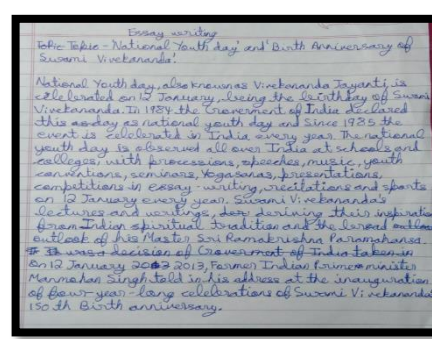 Essay writing
Topic Topic - 'National Youth day' and 'Birth Anniversary of
Swami Vivekananda'.
National Youth day, also known as Vivekananda Jayanti is
celebrated on 12 January, being the birthday of Swami
Vivekananda. In 1984 the Government of India declared
this as day as national youth day and Since 1985 the
event is celebrated in India every year. The national
youth day is observed all over India at schools and
colleges, with processions, speeches, music, youth
conventions, seminars, Yogasanas, presentations,
competitions in essay-writing, recitations and sports
on 12 January every year. Swami Vivekananda's
lectures and writings, der deriving their inspiration
from Indian spiritual tradition and the broad outloo
outlook of his Master Sri Ramakrishna Paramahansa.
It was a decision of Government of India taken in
On 12 January 2013, Former Indian Prime minister
Manmohan Singh told in his address at the inauguration
of four-year-long celebrations of Swami Vivekananda's
150th Birth anniversary.